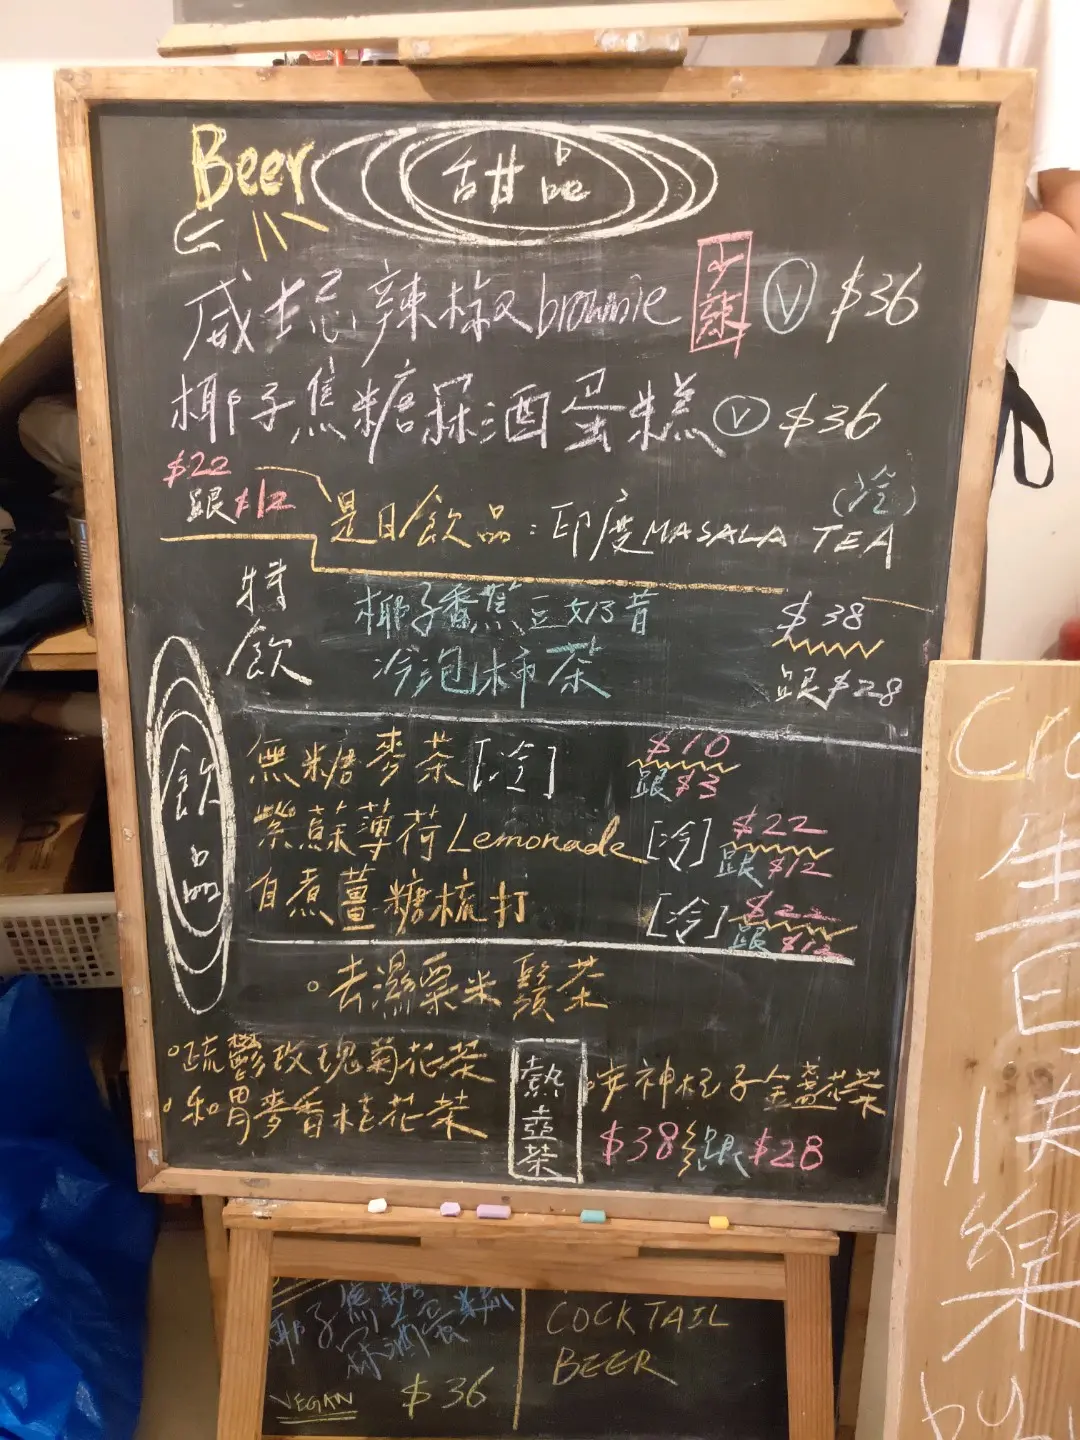 Beer
甜品
威士忌辣椒brownie 少辣 V $36
椰子焦糖冧酒蛋糕 V $36
$22
跟$12
是日飲品：印度MASALA TEA (冷)
特飲
椰子香蕉豆奶昔
冷泡柿茶
$38
跟$28
飲品
無糖麥茶[冷] $10 跟$3
紫蘇薄荷Lemonade [冷] $22 跟$12
自煮薑糖梳打 [冷] $22 跟$12
。去濕粟米鬚茶
。疏鬱玫瑰菊花茶
。和胃麥香桂花茶
熱壺茶
。安神杞子金盞花茶
$38 跟$28
椰子焦糖冧酒蛋糕
VEGAN $36
COCKTAIL
BEER
生日快樂
by